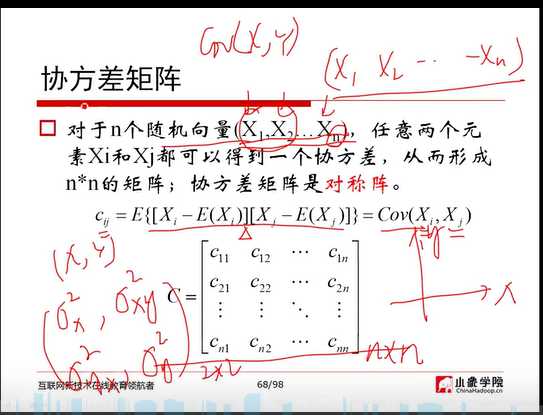 Cov(X,Y)
(X₁ X₂ ··· -Xₙ)
协方差矩阵
对于n个随机向量(X₁,X₂…Xₙ)，任意两个元
素Xi和Xj都可以得到一个协方差，从而形成
n*n的矩阵；协方差矩阵是对称阵。
c_ij = E{[X_i − E(X_i)][X_j − E(X_j)]} = Cov(X_i, X_j)
(X,Y)
X
C = [c₁₁ c₁₂ ⋯ c₁ₙ
c₂₁ c₂₂ ⋯ c₂ₙ
⋮ ⋮ ⋱ ⋮
cₙ₁ cₙ₂ ⋯ cₙₙ]
σ²x, σ²xy
2x2
nxn
互联网新技术在线教育领航者
68/98
小象学院
ChinaHadoop.cn